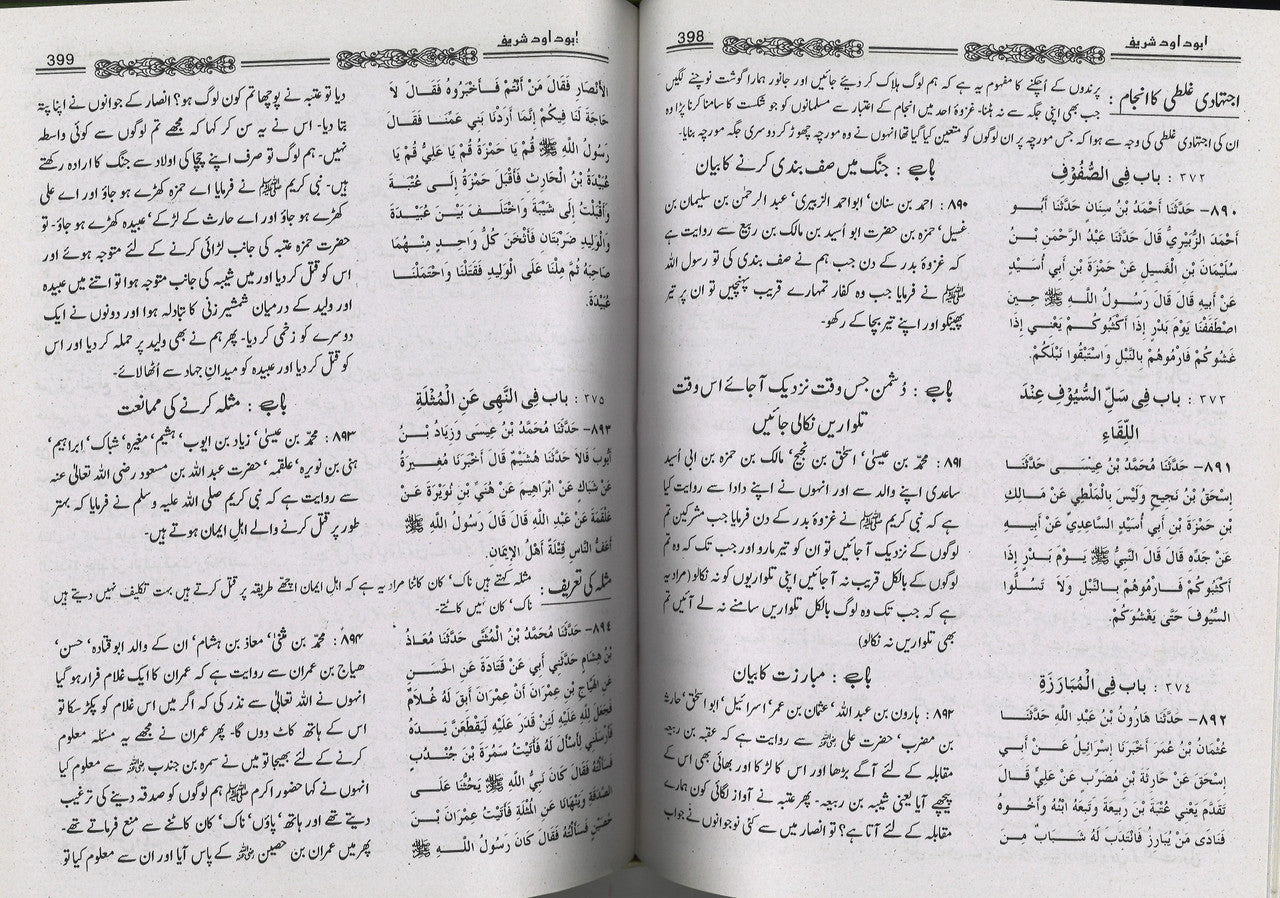 ابوداود شریف
398
اجتہادی غلطی کا انجام : پرندوں کے اُچکنے کا مفہوم یہ ہے کہ ہم لوگ ہلاک کر دیئے جائیں اور جانور ہمارا گوشت نوچنے لگیں
جب بھی اپنی جگہ سے نہ ہٹنا۔ غزوۂ احد میں انجام کے اعتبار سے مسلمانوں کو جو شکست کا سامنا کرنا پڑا وہ
ان کی اجتہادی غلطی کی وجہ سے ہوا کہ جس مورچہ پر ان لوگوں کو متعین کیا گیا تھا انہوں نے وہ مورچہ چھوڑ کر دوسری جگہ مورچہ بنایا۔
۳۷۲ : باب فِي الصُّفُوْفِ
۸۹۰- حَدَّثَنَا أَحْمَدُ بْنُ سِنَان حَدَّثَنَا أَبُو
أَحْمَدَ الزُّبَيْرِيُّ قَالَ حَدَّثَنَا عَبْدُ الرَّحْمَنِ بْنُ
سُلَيْمَانَ بْنِ الْغَسِيلِ عَنْ حَمْزَةَ بْنِ أَبِي أُسَيْدٍ
عَنْ أَبِيهِ قَالَ قَالَ رَسُولُ اللهِ ﷺ حِينَ
اصْطَفَفْنَا يَوْمَ بَدْرٍ إِذَا أَكْثَبُوكُمْ يَعْنِي إِذَا
غَشُوكُمْ فَارْمُوهُمْ بِالنَّبْلِ وَاسْتَبْقُوا نَبْلَكُمْ۔
باب : جنگ میں صف بندی کرنے کا بیان
۸۹۰ : احمد بن سنان‘ ابو احمد الزبیری‘ عبد الرحمٰن بن سلیمان بن
غسیل‘ حمزہ بن حضرت ابو اُسید بن مالک بن ربیع سے روایت ہے
کہ غزوۂ بدر کے دن جب ہم نے صف بندی کی تو رسول اللہ
ﷺ نے فرمایا جب وہ کفار تمہارے قریب پہنچیں تو ان پر تیر
پھینکو اور اپنے تیر بچا کے رکھو۔
۳۷۳ : باب فِي سَلِّ السُّيُوْفِ عِنْدَ
اللِّقَاءِ
۸۹۱- حَدَّثَنَا مُحَمَّدُ بْنُ عِيْسَى حَدَّثَنَا
إِسْحَقُ بْنُ نَجِيحٍ وَلَيْسَ بِالْمَلْطِي عَنْ مَالِكِ
بْنِ حَمْزَةَ بْنِ أَبِي أُسَيْدٍ السَّاعِدِيِّ عَنْ أَبِيهِ
عَنْ جَدِّهِ قَالَ قَالَ النَّبِيُّ ﷺ يَوْمَ بَدْرٍ إِذَا
أَكْثَبُوكُمْ فَارْمُوهُمْ بِالنَّبْلِ وَلَا تَسُلُّوا
السُّيُوفَ حَتَّى يَغْشَوْكُمْ۔
باب : دُشمن جس وقت نزدیک آ جائے اس وقت
تلواریں نکالی جائیں
۸۹۱ : محمد بن عیسیٰ‘ اسحٰق بن نجیح‘ مالک بن حمزہ بن ابی اُسید
ساعدی اپنے والد سے اور انہوں نے اپنے دادا سے روایت کیا
ہے کہ نبی کریم ﷺ نے غزوۂ بدر کے دن فرمایا جب مشرکین تم
لوگوں کے نزدیک آ جائیں تو ان کو تیر مارو اور جب تک کہ وہ تم
لوگوں کے بالکل قریب نہ آ جائیں اپنی تلواریوں کو نہ نکالو (مراد یہ
ہے کہ جب تک وہ لوگ بالکل تلواریں سامنے نہ لے آئیں تم
بھی تلواریں نہ نکالو)
۳۷٤ : باب فِي الْمُبَارَزَةِ
۸۹۲- حَدَّثَنَا هَارُونُ بْنُ عَبْدِ اللهِ حَدَّثَنَا
عُثْمَانُ بْنُ عُمَرَ أَخْبَرَنَا إِسْرَائِيلُ عَنْ أَبِي
إِسْحَقَ عَنْ حَارِثَةَ بْنِ مُضَرِّبٍ عَنْ عَلِيٍّ قَالَ
تَقَدَّمَ يَعْنِي عُتْبَةَ بْنَ رَبِيعَةَ وَتَبِعَهُ ابْنُهُ وَأَخُوهُ
فَنَادَى مَنْ يُبَارِزُ فَانْتَدَبَ لَهُ شَبَابٌ مِنَ
باب : مبارزت کا بیان
۸۹۲ : ہارون بن عبد اللہ‘ عثمان بن عمر‘ اسرائیل‘ ابو اسحٰق‘ حارث
بن مضرب‘ حضرت علی سے روایت ہے کہ عقبہ بن ربیعہ
مقابلہ کے لئے آگے بڑھا اور اس کا لڑکا اور بھائی بھی اس کے
پیچھے آیا یعنی شیبہ بن ربیعہ۔ پھر عتبہ نے آواز لگائی کون ہمارے
مقابلہ کے لئے آتا ہے؟ تو انصار میں سے کئی نوجوانوں نے جواب
ابوداود شریف
399
الْأَنْصَارِ فَقَالَ مَنْ أَنْتُمْ فَأَخْبَرُوهُ فَقَالَ لَا
حَاجَةَ لَنَا فِيكُمْ إِنَّمَا أَرَدْنَا بَنِي عَمِّنَا فَقَالَ
رَسُولُ اللهِ ﷺ قُمْ يَا حَمْزَةُ قُمْ يَا عَلِيُّ قُمْ يَا
عُبَيْدَةُ بْنُ الْحَارِثِ فَأَقْبَلَ حَمْزَةُ إِلَى عُتْبَةَ
وَأَقْبَلْتُ إِلَى شَيْبَةَ وَاخْتَلَفَ بَيْنَ عُبَيْدَةَ
وَالْوَلِيدِ ضَرْبَتَانِ فَأَثْخَنَ كُلُّ وَاحِدٍ مِنْهُمَا
صَاحِبَهُ ثُمَّ مِلْنَا عَلَى الْوَلِيدِ فَقَتَلْنَا وَاحْتَمَلْنَا
عُبَيْدَةَ۔
دیا تو عتبہ نے پوچھا تم کون لوگ ہو؟ انصار کے جوانوں نے اپنا پتہ
بتا دیا۔ اس نے یہ سن کر کہا کہ مجھے تم لوگوں سے کوئی واسطہ
نہیں۔ ہم لوگ تو صرف اپنے چچا کی اولاد سے جنگ کا ارادہ رکھتے
ہیں۔ نبی کریم ﷺ نے فرمایا اے حمزہ کھڑے ہو جاؤ اور اے علی
کھڑے ہو جاؤ اور اے حارث کے لڑکے‘ عبیدہ کھڑے ہو جاؤ۔ تو
حضرت حمزہ عتبہ کی جانب لڑائی کرنے کے لئے متوجہ ہوئے اور
اس کو قتل کر دیا اور میں شیبہ کی جانب متوجہ ہوا تو اتنے میں عبیدہ
اور ولید کے درمیان شمشیر زنی کا تبادلہ ہوا اور دونوں نے ایک
دوسرے کو زخمی کر دیا۔ پھر ہم نے بھی ولید پر حملہ کر دیا اور اس
کو قتل کر دیا اور عبیدہ کو میدانِ جہاد سے اُٹھا لائے۔
۳۷۵ : باب فِي النَّهِي عَنِ الْمُثْلَةِ
۸۹۳- حَدَّثَنَا مُحَمَّدُ بْنُ عِيسَى وَزِيَادُ بْنُ
أَيُّوبَ قَالَا حَدَّثَنَا هُشَيْمٌ قَالَ أَخْبَرَنَا مُغِيرَةُ
عَنْ شِبَاكٍ عَنْ ابْرَاهِيمَ عَنْ هُنَيِّ بْنِ نُوَيْرَةَ عَنْ
عَلْقَمَةَ عَنْ عَبْدِ اللهِ قَالَ قَالَ رَسُولُ اللهِ ﷺ
أَعَفُّ النَّاسِ قِتْلَةً أَهْلُ الْإِيْمَانِ۔
باب : مثلہ کرنے کی ممانعت
۸۹۳ : محمد بن عیسیٰ‘ زیاد بن ایوب‘ ہشیم‘ مغیرہ‘ شباک‘ ابراہیم‘
ہنی بن نویرہ‘ علقمہ‘ حضرت عبد اللہ بن مسعود رضی اللہ تعالیٰ عنہ
سے روایت ہے کہ نبی کریم صلی اللہ علیہ وسلم نے فرمایا کہ بہتر
طور پر قتل کرنے والے اہلِ ایمان ہوتے ہیں۔
مثلہ کی تعریف : مثلہ کہتے ہیں ناک‘ کان کاٹنا مراد یہ ہے کہ اہلِ ایمان اچھے طریقہ پر قتل کرتے ہیں بہت تکلیف نہیں دیتے ہیں
ناک‘ کان نہیں کاٹتے۔
۸۹٤- حَدَّثَنَا مُحَمَّدُ بْنُ الْمُثَنَّى حَدَّثَنَا مُعَاذُ
بْنُ هِشَامٍ حَدَّثَنِي أَبِي عَنْ قَتَادَةَ عَنِ الْحَسَنِ
عَنِ الْهَيَّاجِ بْنِ عِمْرَانَ أَنَّ عِمْرَانَ أَبَقَ لَهُ غُلَامٌ
فَجَعَلَ لِلَّهِ عَلَيْهِ لَئِنْ قَدَرَ عَلَيْهِ لَيَقْطَعَنَّ يَدَهُ
فَأَرْسَلَنِي لِأَسْأَلَ لَهُ فَأَتَيْتُ سَمُرَةَ بْنَ جُنْدُبٍ
فَسَأَلْتُهُ فَقَالَ كَانَ نَبِيُّ اللهِ ﷺ يَحُثُّنَا عَلَى
الصَّدَقَةِ وَيَنْهَانَا عَنِ الْمُثْلَةِ فَأَتَيْتُ عِمْرَانَ بْنَ
حُصَيْنٍ فَسَأَلْتُهُ فَقَالَ كَانَ رَسُولُ اللهِ ﷺ
۸۹۴ : محمد بن مثنیٰ‘ معاذ بن ہشام‘ ان کے والد ابو قتادہ‘ حسن‘
ھیاج بن عمران سے روایت ہے کہ عمران کا ایک غلام فرار ہو گیا
انہوں نے اللہ تعالیٰ سے نذر کی کہ اگر میں اس غلام کو پکڑ سکا تو
اس کے ہاتھ کاٹ دوں گا۔ پھر عمران نے مجھے یہ مسئلہ معلوم
کرنے کے لئے بھیجا تو میں نے سمرہ بن جندب سے معلوم کیا
انہوں نے کہا حضور اکرم ﷺ ہم لوگوں کو صدقہ دینے کی ترغیب
دیتے تھے اور ہاتھ‘ پاؤں‘ ناک‘ کان کاٹنے سے منع فرماتے تھے۔
پھر میں عمران بن حصین کے پاس آیا اور ان سے معلوم کیا تو